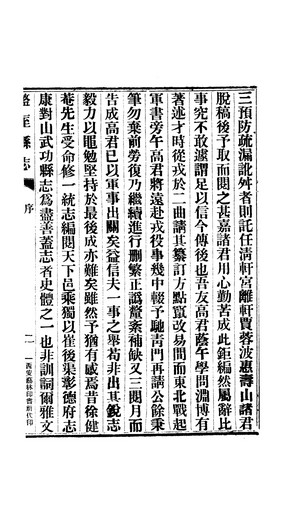 三預防疏漏訛舛者則託任清軒宮離軒賈蓉波惠壽山諸君
脫稿後予取而閱之甚嘉諸君用心勤苦成此鉅編然屬辭比
事究不敢遽謂足以信今傳後也吾友高君蔭午學問淵博有
著述才時從戎於二曲請其纂訂方點竄改易間而東北戰起
軍書旁午高君將遠赴戎役事幾中輟予馳青門再請公餘秉
筆勿棄前勞復乃繼續進行删繁正譌釐紊補缺又三閱月而
告成高君已以軍事出關矣益信夫一事之舉苟非出其銳志
毅力以黽勉堅持於最後成亦難矣雖然予猶有慼焉昔徐健
菴先生受命修一統志編閱天下邑乘獨以崔後渠彰德府志
康對山武功縣志為盡善蓋志者史體之一也非訓詞爾雅文
盩厔縣志
序
二
西安藝林印書社代印